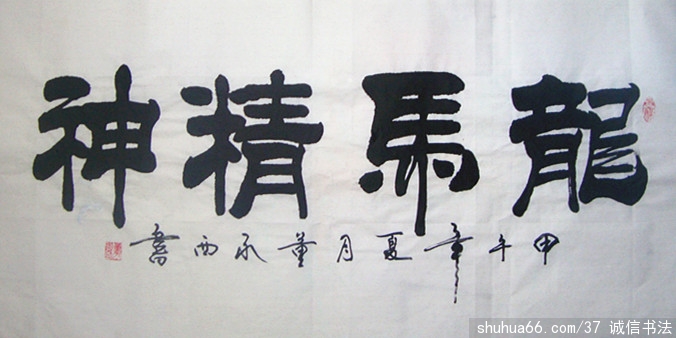 龍馬精神
甲午年夏月董承西書
shuhua66.com/37 诚信书法